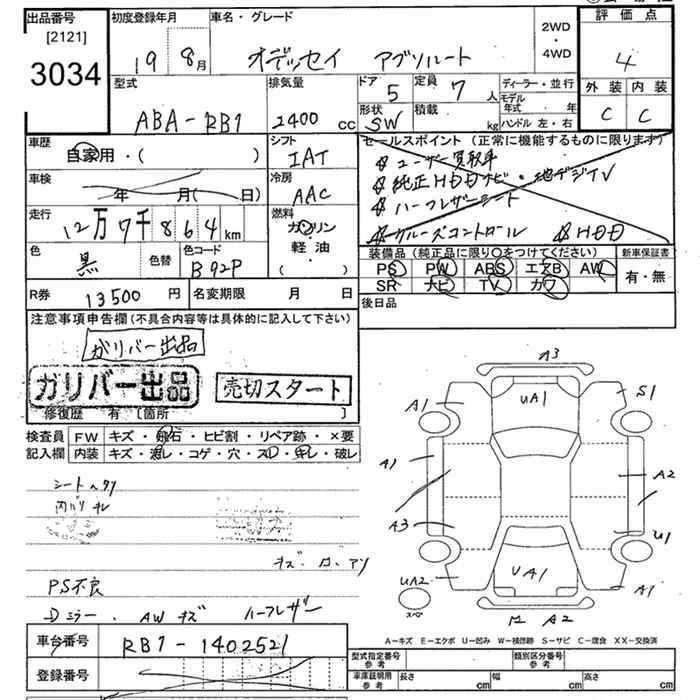 出品番号
[2121]
3034
初度登録年月
19 8月
車名・グレード
オデッセイ アブソルート
2WD
・
4WD
評価点
4
外装 内装
C C
型式
ABA-RB1
排気量
2400 cc
ドア 5
定員 7 人
形状 SW
積載 kg
ディーラー・並行
モデル年式 年
ハンドル 左・右
車歴
自家用・( )
シフト
IAT
セールスポイント (正常に機能するものに限ります)
ユーザー買取車
純正HDDナビ・地デジTV
ハーフレザーシート
クルーズコントロール HDD
車検
年 月( 日)
冷房
AAC
走行
12万7千864km
燃料
ガソリン
軽油・
( )
色
黒
色替
色コード
B92P
装備品 (純正品に限り○をつけてください)
PS PW ABS エアB AW
SR ナビ TV カワ
新車保証書
有・無
R券 13500 円
名変期限 月 日
後日品
注意事項申告欄(不具合内容等は具体的に記入して下さい)
ガリバー出品
ガリバー出品
売切スタート
修復歴 有 〔箇所 〕
検査員記入欄
FW キズ・飛石・ヒビ割・リペア跡・×要
内装 キズ・汚レ・コゲ・穴・スレ・キレ・破レ
シートヘタリ
内バリキレ
キズ・ロ・アリ
PS不良
Dミラー・AWキズ ハーフレザー
車台番号 RB1-1402521
登録番号
A3
UA1
A1
S1
A1
A2
A3
U1
UA2
スペア
UA1
A1
A2
A-キズ E-エクボ U-凹み W-補修跡 S-サビ C-腐食 XX-交換済
型式指定番号 参考
類別区分番号 参考
車庫証明用 参考
長さ cm
幅 cm
高さ cm